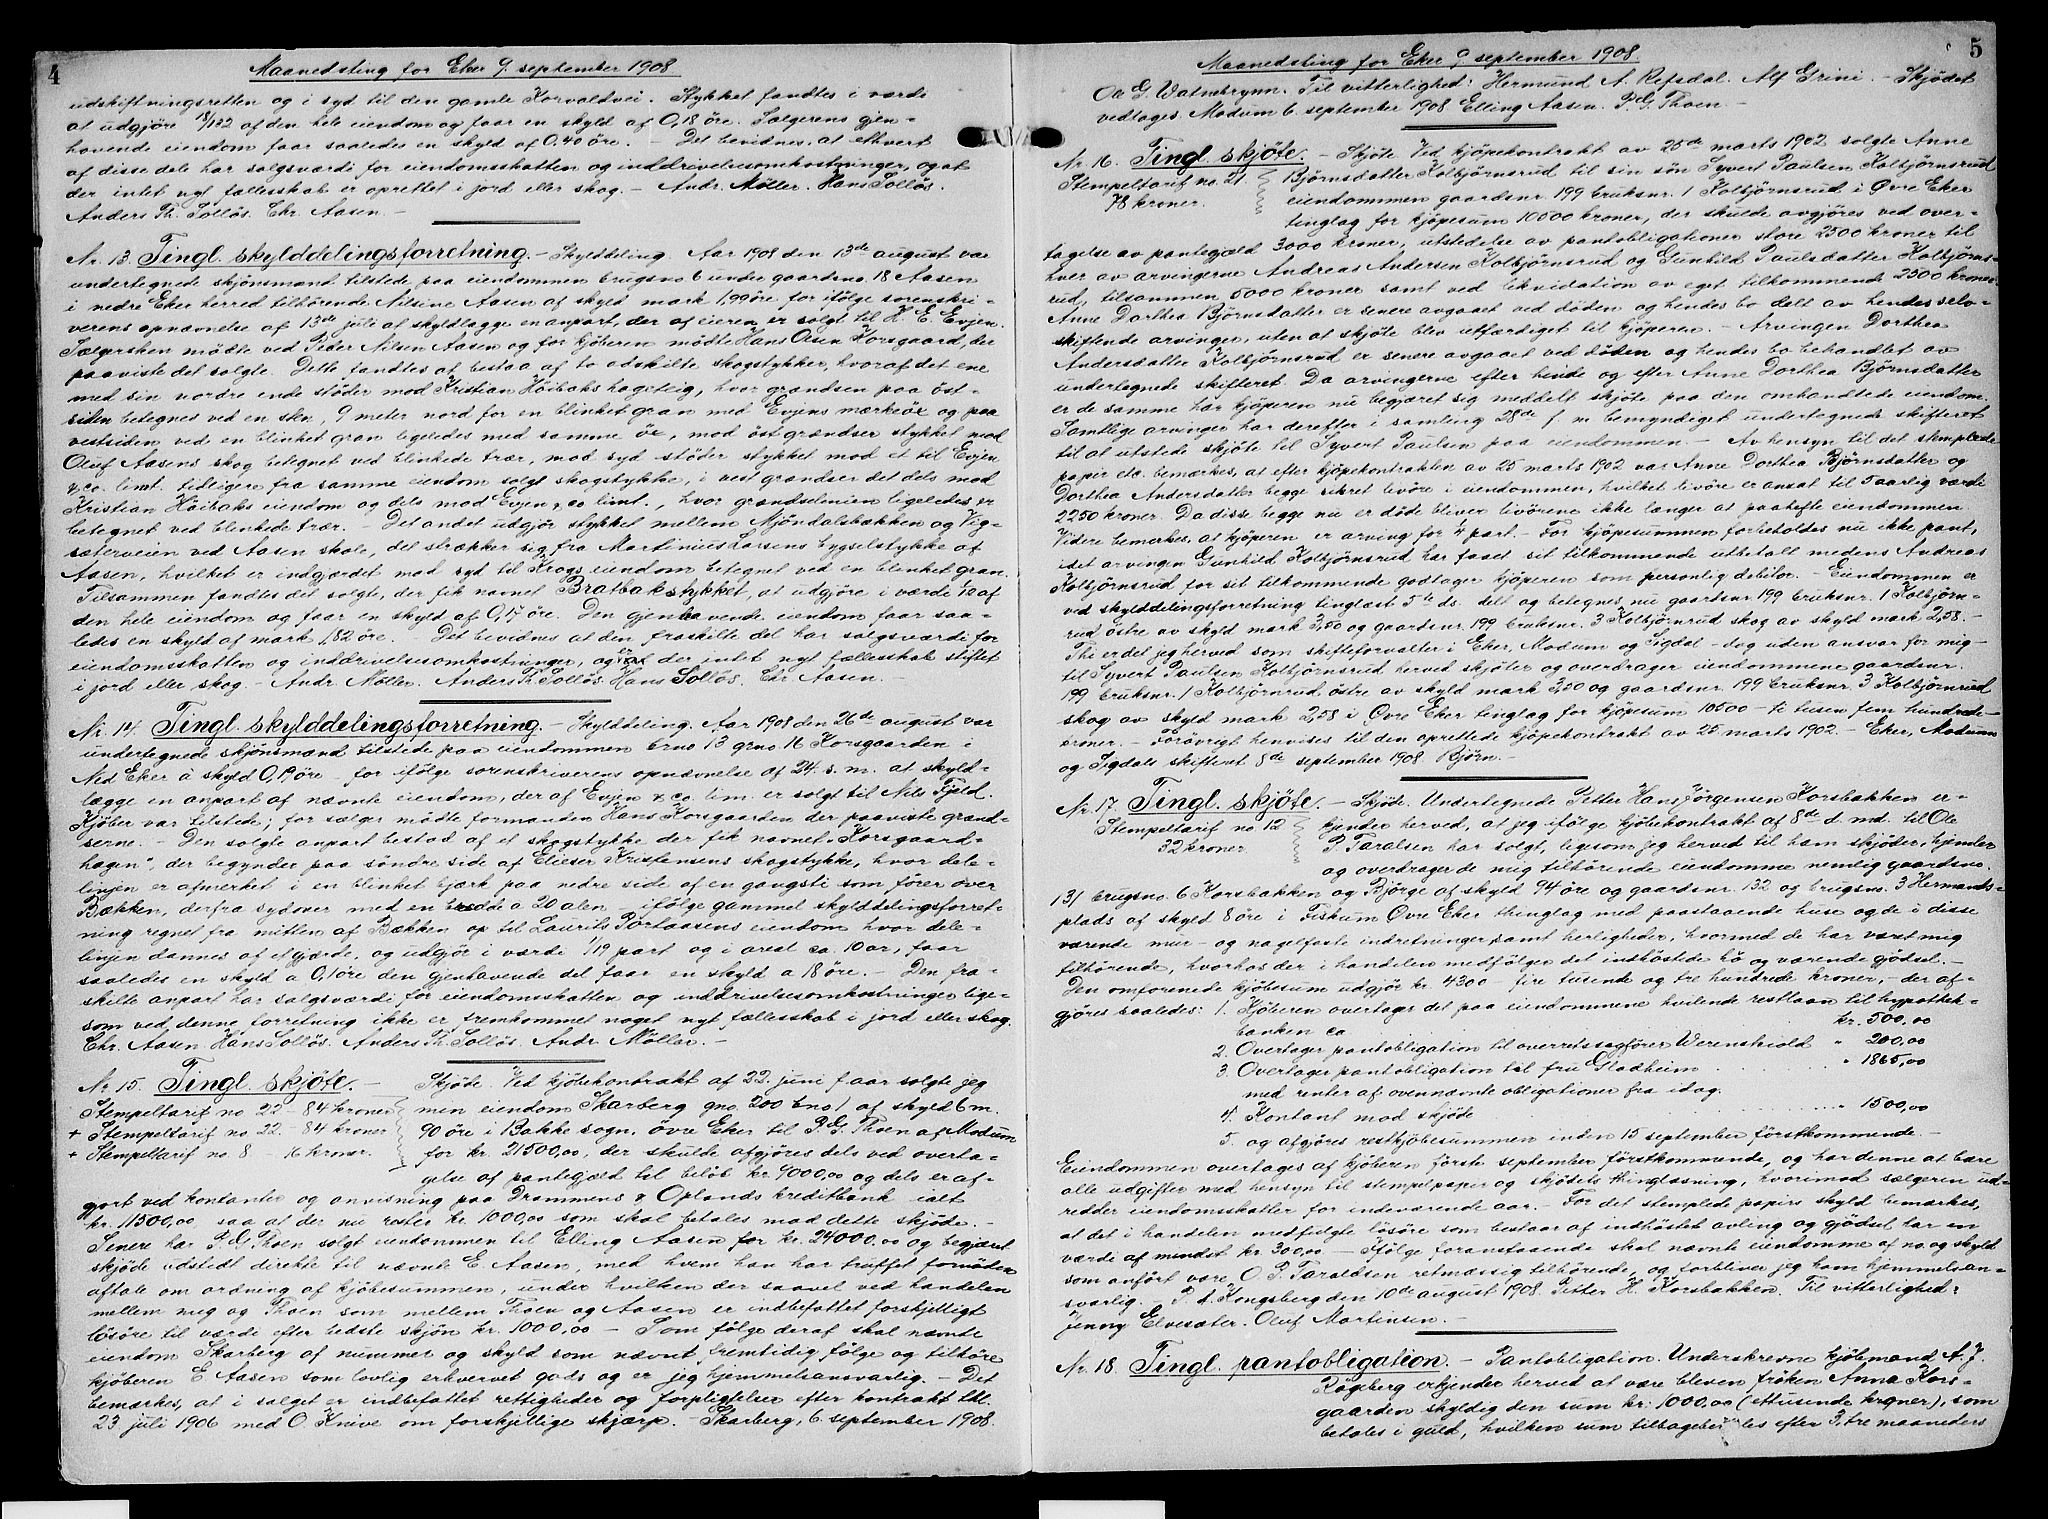 4
Maanedsting for Eker 9. september 1908.
udskiftningsretten og i syd til den gamle Korvaldvei. Stykket fandtes i værde
at udgjøre 18/132 af den hele eiendom og faar en skyld af 0,18 øre. Sælgerens gjen-
havende eiendom faar saaledes en skyld af 0.40 øre. – Det bevidnes, at ethvert
af disse dele har salgsværdi for eiendomsskatten og inddrivelsesomkostninger, og at
der intet nyt fællesskab er oprettet i jord eller skog. – Andr. Møller. Hans Solløs.
Anders Th. Solløs. Chr. Aasen. –
Nr. 13. Tingl. skylddelingsforretning. – Skylddeling. Aar 1908 den 13de august var
undertegnede skjønsmænd tilstede paa eiendommen brugsno 6 under gaardsno. 18 Aasen
i nedre Eker herred tilhørende Nilsine Aasen af skyld mark 1,99 øre for ifølge sorenskri-
verens opnævnelse af 13de juli af skyldlægge en anpart, der af eieren er solgt til H. E. Evjen.
Sælgersken mødte ved Peder Nilsen Aasen og for kjøberen mødte Hans Olsen Korsgaard, der
paaviste det solgte. Dette fandtes at bestaa af to adskilte skogstykker, hvoraf det ene
med sin nordre ende støder mod Kristian Høibaks hageteig, hvor grændsen paa øst-
siden betegnes ved en sten, 9 meter nord for en blinket gran med Evjens mærkeøx og paa
vestsiden ved en blinket gran ligeledes med samme øx, mod øst grændser stykket mod
Oluf Aasens skog betegnet ved blinkede trær, mod syd støder stykket mod et til Evjen
& co. limt. tidligere fra samme eiendom solgt skogstykke, i vest grændser det dels mod
Kristian Høibaks eiendom og dels mod Evjen & co limt., hvor grændselinien ligeledes er
betegnet ved blinkede trær. – Det andet udgjør stykket mellem Mjøndalsbakken og Vig-
sæterveien ved Aasen skole, det strækker sig fra Martinius Larsens bygselstykke af
Aasen, hvilket er indgjærdet mod syd til Krogs eiendom betegnet ved en blinket gran.
Tilsammen fandtes det solgte, der fik navnet Bratbakstykket, at udgjøre i værde 1/12 af
den hele eiendom og faar en skyld af 0,17 øre. Den gjenhavende eiendom faar saa-
ledes en skyld af mark 1,82 øre. Det bevidnes at den fraskilte del har salgsværdi for
eiendomsskatten og inddrivelsesomkostninger, og at der intet nyt fællesskab stiftet
i jord eller skog. – Andr. Møller. Anders Th. Solløs. Hans Solløs. Chr. Aasen. –
Nr. 14. Tingl. skylddelingsforretning. – Skylddeling. Aar 1908 den 26de august var
undertegnede skjønsmænd tilstede paa eiendommen brno 13 grno 16 Korsgaarden i
Ned. Eker à skyld 0,19 øre – for ifølge sorenskriverens opnævnelse af 24. s. m. at skyld-
lægge en anpart af nævnte eiendom, der af Evjen & co. lim. er solgt til Nils Fjeld.
Kjøber var tilstede; for sælger mødte formanden Hans Korsgaarden der paaviste grænd-
serne. – Den solgte anpart bestod af et skogstykke der fik navnet „Korsgaard-
hagen”, der begynder paa søndre side af Elieser Kristensens skogstykke, hvor dele-
linjen er afmerket i en blinket bjærk paa nedre side af en gangsti som fører over
Bækken, derfra sydover med en bredde a 20 alen – ifølge gammel skylddelingsforret-
ning regnet fra mitten af Bækken op til Laurits Portaasens eiendom hvor dele-
linjen dannes af et gjærde, og udgjør i værde 1/19 part og i areal ca 10 ar, faar
saaledes en skyld a 0,1 øre den gjenhavende del faar en skyld a 18 øre. – Den fra-
skilte anpart har salgsværdi for eiendomsskatten og inddrivelsesomkostninger lige-
som ved denne forretning ikke er fremkommet noget nyt fællesskab i jord eller skog.
Chr. Aasen Hans Solløs. Anders Th. Solløs. Andr. Møller. –
Nr 15. Tingl. skjøte. – Skjøde. Ved kjøbekontrakt af 22. juni f aar solgte jeg
Stempeltarif no 22 – 84 kroner min eiendom Skarberg gno. 200 bno 1 af skyld 6 m.
+ Stempeltarif no. 22 – 84 kroner 90 øre i Bakke sogn, øvre Eker til P. G. Thoen af Modum
+ Stempeltarif no 8 – 16 kroner. for kr. 21500,00, der skulde afgjøres dels ved overta-
gelse af pantegjæld til beløb kr. 9000,00 og dels er af-
gjort ved kontanter og anvisning paa Drammens & Oplands kreditbank ialt
kr. 11500,00 saa at der nu rester kr. 1000,00 som skal betales mod dette skjøde. –
Senere har P. G. Thoen solgt eiendommen til Elling Aasen for kr. 24000.00 og begjæret
skjøde udstedt direkte til nævnte E Aasen, med hvem han har truffet fornøden
aftale om ordning af kjøbesummen, under hvilken der saavel ved handelen
mellem mig og Thoen som mellem Thoen og Aasen er indbefattet forskjelligt
løsøre til værdi efter bedste skjøn kr. 1000,00 – Som følge deraf skal nævnte
eiendom Skarberg af nummer og skyld som nævnt fremtidig følge og tilhøre
kjøberen E. Aasen som lovlig erhvervet gods og er jeg hjemmelsansvarlig. – Det
bemærkes, at i salget er indbefattet rettigheder og forpligtelser efter kontrakt thl.
23 juli 1906 med O Knive om forskjellige skjærp. – Skarberg, 6. september 1908.
5
Maanedsting for Eker 9 september 1908.
Ole G. Watnebrynn. Til vitterlighed: Hermund A. Refsdal. Alf Grini. – Skjødet
vedtages Modum 6 september 1908 Elling Aasen. P. G. Thoen. –
Nr. 16. Tingl. skjøte. – Skjøte Ved kjøpekontrakt av 25de marts 1902 solgte Anne
Stempeltarif no. 21. Bjørnsdatter Kolbjørnsrud til sin søn Syvert Paulsen Kolbjørnsrud
78 kroner. eiendommen gaardsnr. 199 bruksnr. 1 Kolbjørnsrud i Øvre Eker
tinglag for kjøpesum 10000 kroner, der skulde avgjøres ved over-
tagelse av pantegjæld 3000 kroner, utstedelse av pantobligationer store 2500 kroner til
hver av arvingerne Andreas Andersen Kolbjørnsrud og Gunhild Paulsdatter Kolbjørns-
rud, tilsammen 5000 kroner samt ved likvidation av eget tilkommende 2500 kroner.
Anne Dorthea Bjørnsdatter er senere avgaaet ved døden og hendes bo delt av hendes selv-
skiftende arvinger, uten at skjøte blev utfærdiget til kjøperen. – Arvingen Dorthea
Andersdatter Kolbjørnsrud er senere avgaaet ved døden og hendes bo behandlet av
undertegnede skifteret. Da arvingerne efter hende og efter Anne Dorthea Bjørnsdatter
er de samme har kjøperen nu begjæret sig meddelt skjøte paa den omhandlede eiendom.
Samtlige arvinger har derefter i samling 28de f. m. bemyndiget undertegnede skifteret
til at utstede skjøte til Syvert Paulsen paa eiendommen. – Av hensyn til det stemplede
papir etc. bemerkes, at efter kjøpekontrakten av 25 marts 1902 var Anne Dorthea Bjørnsdatter og
Dorthea Andersdatter begge sikret livøre i eiendommen, hvilket livøre er ansat til 5aarlig værdi
2250 kroner. Da disse begge nu er døde bliver livørene ikke længer at paahefte eiendommen
Videre bemerkes, at kjøperen er arving for 1/4 part. – For kjøpesummen forbeholdes nu ikke pant,
idet arvingen Gunhild Kolbjørnsrud har faaet sit tilkommende utbetalt medens Andreas
Kolbjørnsrud for sit tilkommende godtager kjøperen som personlig debitor. – Eiendommen er
ved skylddelingsforretning tinglæst 5te ds. delt og betegnes nu gaardsnr. 199 bruksnr. 1 Kolbjørn-
rud østre av skyld mark 3,50 og gaardsnr. 199 bruksnr. 3 Kolbjørnrud skog av skyld mark 2,58. –
Thi er det jeg herved som skifteforvalter i Eker, Modum og Sigdal – dog uden ansvar for mig –
til Syvert Paulsen Kolbjørnsrud herved skjøter og overdrager eiendommene gaardsnr.
199 bruksnr. 1 Kolbjørnrud østre av skyld mark 3,50 og gaardsnr. 199 bruksnr. 3 Kolbjørnrud
skog av skyld mark 2,58 i Øvre Eker tinglag for kjøpesum 10500 – ti tusen fem hundrede –
kroner. – Forøvrigt henvises til den oprettede kjøpekontrakt av 25. marts 1902. – Eker, Modum
og Sigdals skifteret 8de september 1908. Bjørn. –
Nr. 17. Tingl. skjøte. – Skjøde. Undertegnede Petter Hans Jørgensen Korsbakken er-
Stempeltarif no 12 kjender herved, at jeg ifølge kjøbekontrakt af 8de d. md. til Ole
32 kroner. P. Taralsen har solgt, ligesom jeg herved til ham skjøder, hjemler
og overdrager de mig tilhørende eiendomme nemlig gaardsno.
131 brugsno. 6 Korsbakken og Bjørge af skyld 94 øre og gaardsnr. 132 og brugsno. 3 Hermands-
plads af skyld 8 øre i Fiskum Øvre Eker thinglag med paastaaende huse og de i disse
værende mur- og nagelfaste indretninger samt herligheder, hvormed de har været mig
tilhørende, hvorhos der i handelen medfølger det indhøstede hø og værende gjødsel. –
Den omforenede kjøbesum udgjør kr 4300 – fire tusende og tre hundrede kroner, – der af-
gjøres saaledes: 1. Kjøberen overtager det paa eiendommene hvilende restlaan til hypothek-
banken ca kr. 500,00
2. Overtager pantobligation til overretssagfører Werenskiold „ 200,00
3. Overtager pantobligation til fru Gladheim „ 1865,00
med renter af ovennævnte obligationer fra idag.
4. Kontant mod skjøde „ 1500,00
5. og afgjøres restkjøbesummen inden 15 september førstkommende. –
Eiendommen overtages af kjøberen første september førstkommende, og har denne at bære
alle udgifter med hensyn til stempelpapir og skjødets thinglæsning, hvorimod sælgeren ud-
redder eiendomsskatter for indeværende aar. – For det stemplede papirs skyld bemærkes,
at det i handelen medfulgte løsøre som bestaar af indhøstet avling og gjødsel har en
værdi af mindst kr. 300,00 – Ifølge foranstaaende skal nævnte eiendomme af no. og skyld
som anført være O. P. Taraldsen retmæssig tilhørende, og forbliver jeg ham hjemmelsan-
svarlig. – P. t. Kongsberg den 10de august 1908. Petter H. Korsbakken. Til vitterlighed:
Jenny Elvesæter. Oluf Martinsen. –
Nr. 18. Tingl. pantobligation. – Pantobligation. Underskrevne kjøbmand A. J.
Røgeberg erkjender herved at være bleven frøken Anna Kors-
gaarden skyldig den sum kr: 1000,00 (ettusende kroner), som
betales i guld, hvilken sum tilbagebetales efter 3, tre maaneders